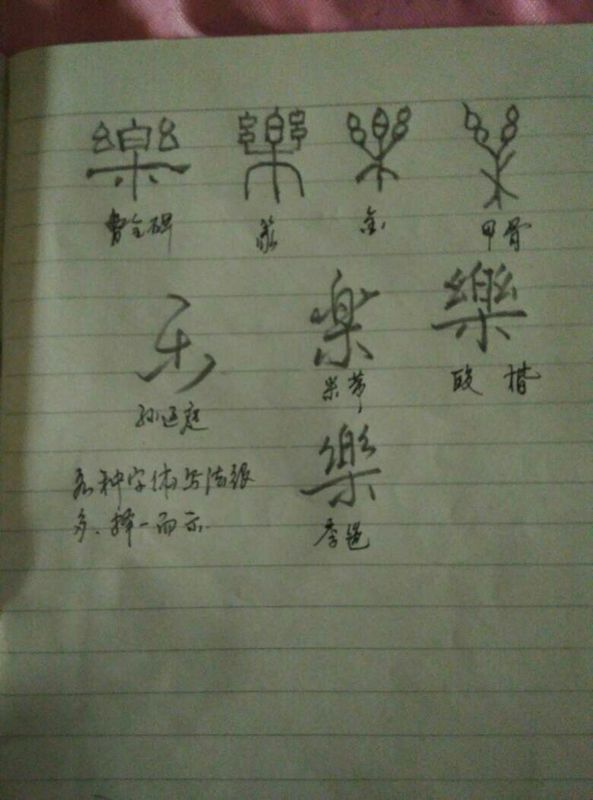 樂 樂 樂 樂
曹全碑 篆 金 甲骨
乐 楽 樂
孙过庭 米芾 欧 楷
樂
李邕
各种字体写法很
多、择一而示.